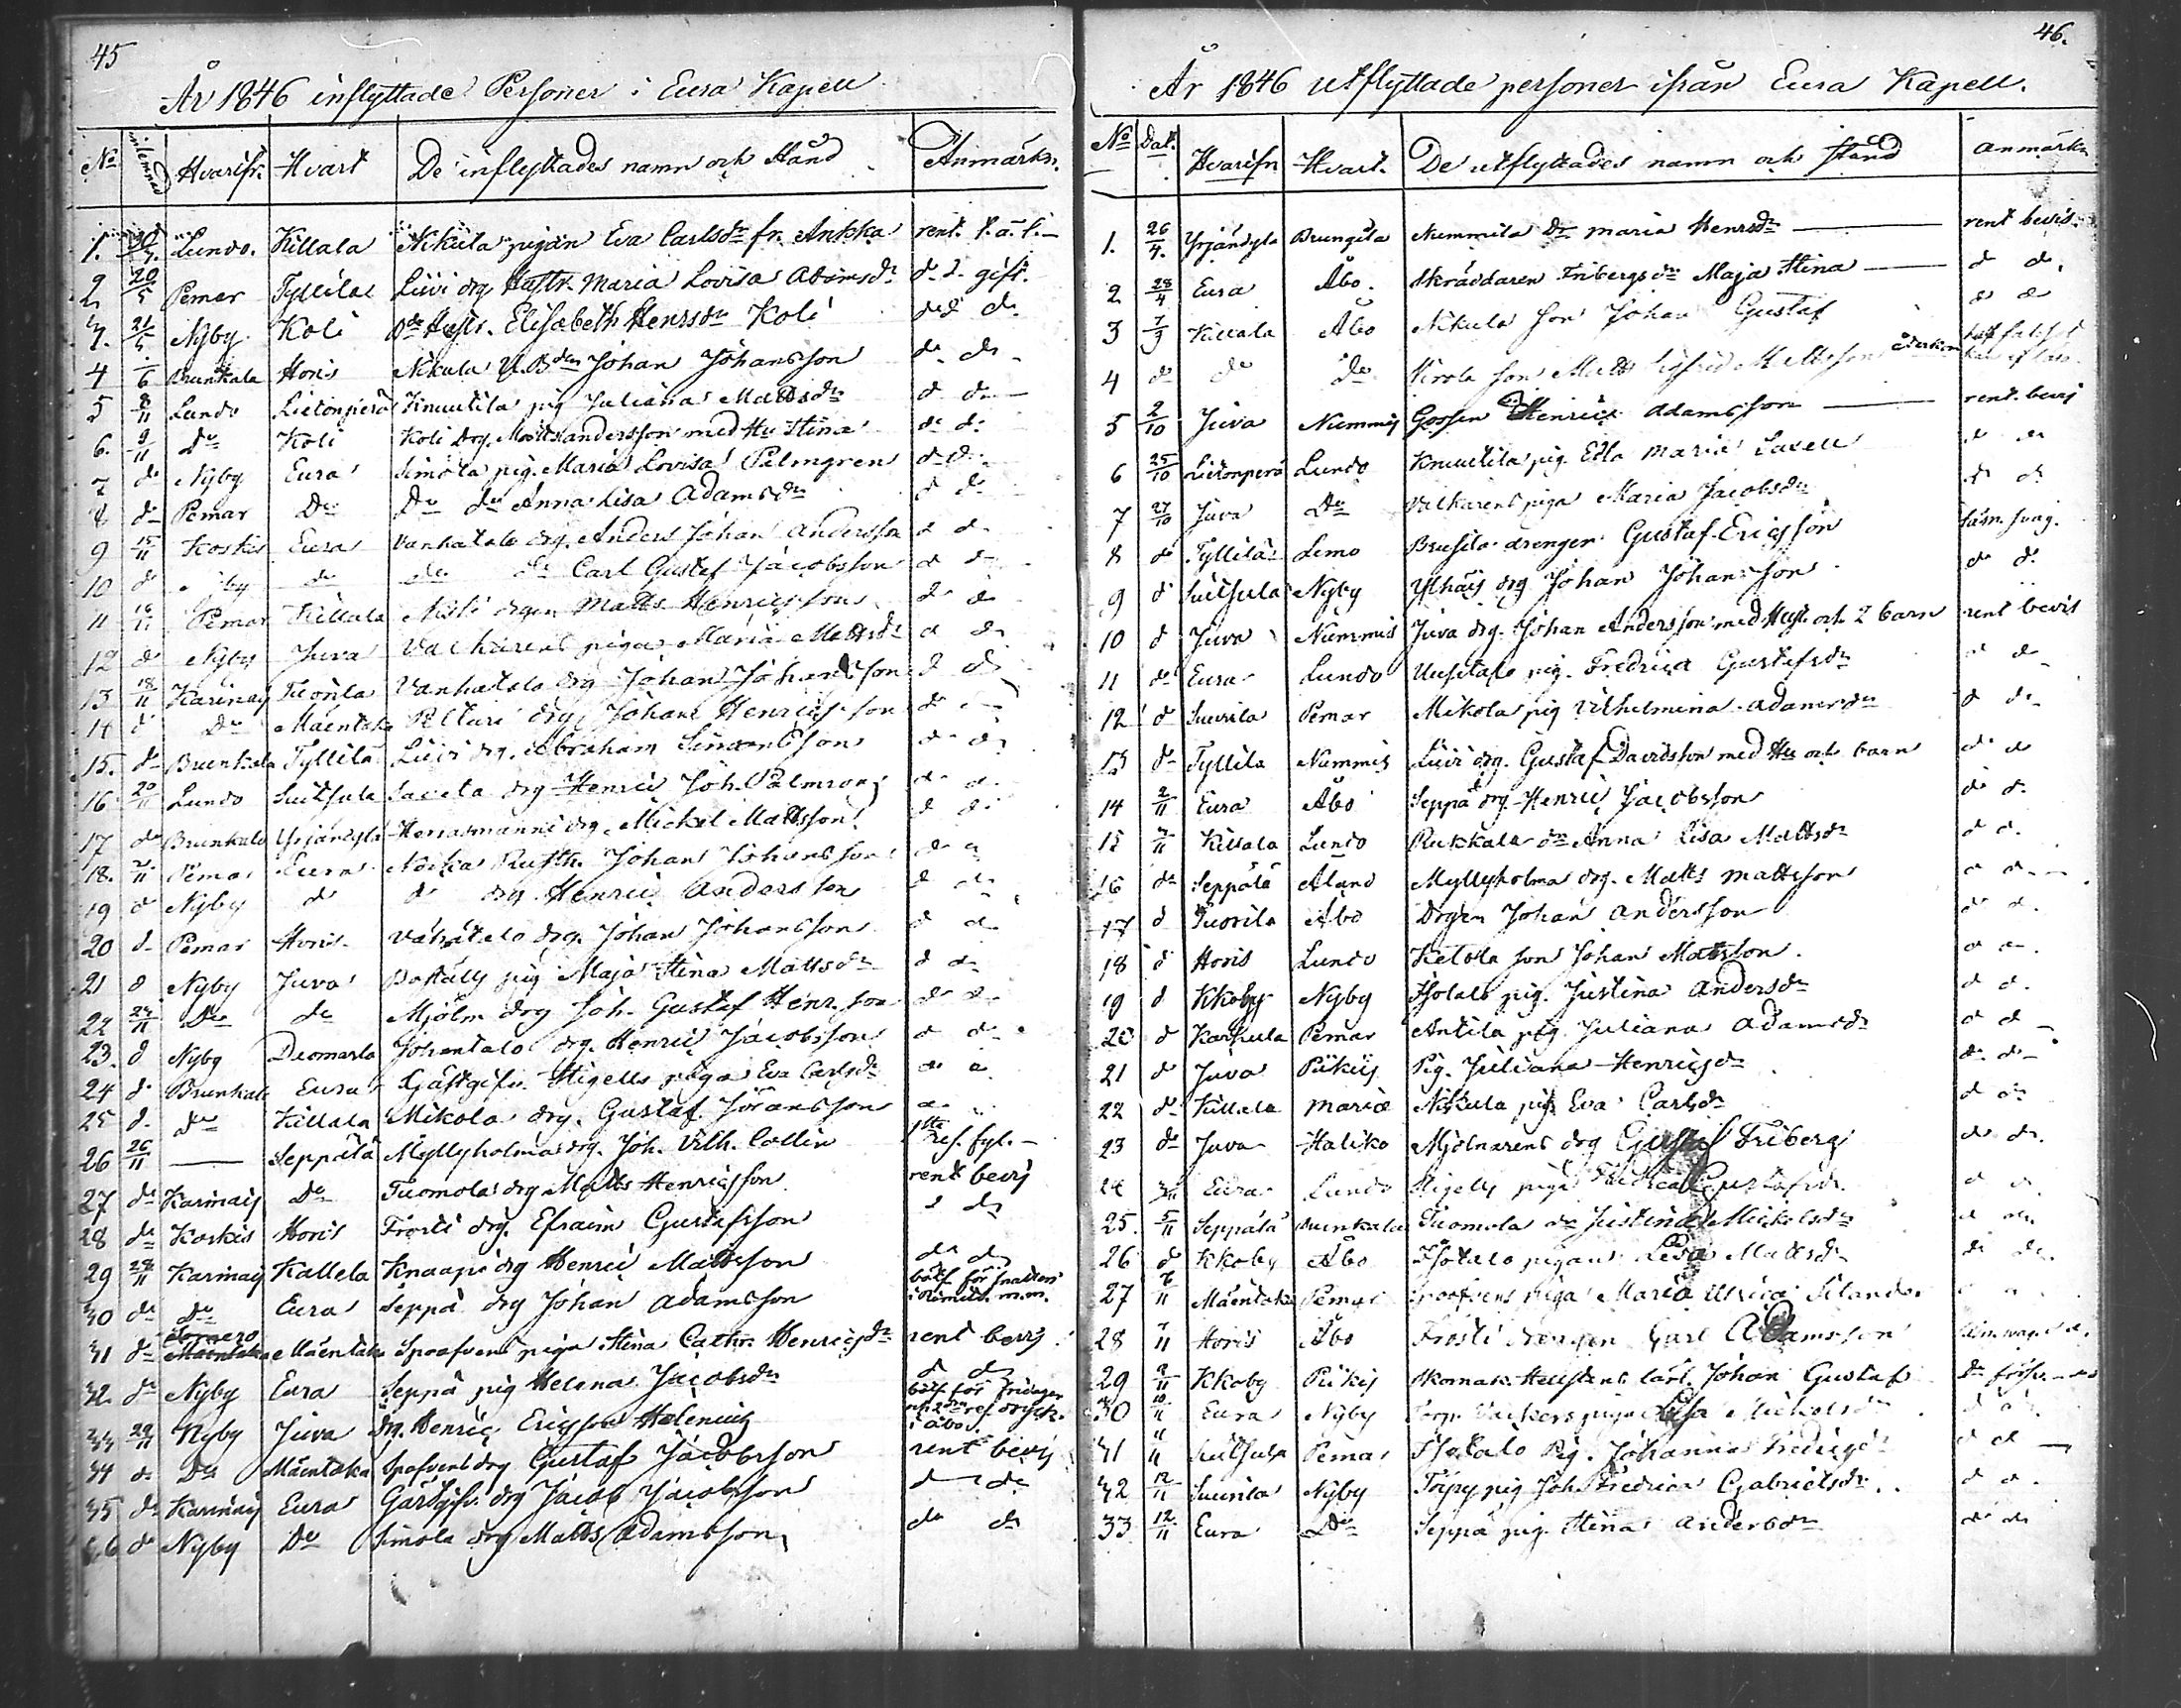 45
År 1846 inflyttade Personer i Eura Kapell
No inlemnad Hvarifr. Hvart De inflyttades namn och stånd Anmärkn.
1. Lundo. Killala Nikula pigan Eva Carlsdr fr. Ankka rent. f. a. f.
2 20/5 Pemar Tyllilä Liivi drg Hustr. Maria Lovisa Adamsdr do d. gift.
3. 21/5 Nyby Koli do Hustr. Elisabeth Henrsdr Koli do do
4 /6 Brunkala Horis Nikula Johan Johansson do do
5 8/11 Lundo Lietonperä Knuutila pig Juliana Mattsdr d do
6. 9/11 do Koli Koli drg. Matts Andersson med Hu Stina do do
7 do Nyby Eura Simola pig. Maria Lovisa Palmgren do do
8 do Pemar Do Do do Anna Lisa Adamsdr d do
9 15/11 Koskis Eura Vanhatalo drg. Anders Johan Andersson d do
10 d do do do Carl Gustaf Jacobsson d do
11 16/11 Pemar Killala drgen Matts Henricsson do do
12 do Nyby Juva piga Maria Mattsdr d do
13 18/11 Karinais Tuorila Vanhatalo drg Johan Johansson d do
14 d Do Mäentaka Peltari drg. Johan Henricsson do
15. do Brunkala Tyllilä Liivi drg. Abraham Simonsson do do
16 20/11 Lundo Suitsula drg Henric Joh. Palmroos do do
17 do Brunkala Yrjänkylä Herrasmanni drg. Michel Mattsson d do
18. 2/11 Pemar Eura Nokka Rusth. Johan Johansson do
19 d Nyby d d drg Henric Andersson d do
20 d Pemar Horis Vähätalo drg. Johan Johansson d do
21 d Nyby Juva pig Maja Stina Mattsdr d do
22 24/11 Do do Mjöln drg Joh. Gustaf Henr. son do do
23. d Nyby Duomarla Johantalo drg. Henric Jacobsson d do
24 do Brunkala Eura Gästgifv. Stigells piga Eva Carlsdr do
25 d. do Killala Mikola drg. Gustaf Göransson d
26 26/11 — Seppälä Myllyholma drg. Joh. Vilh. Collin
27 do Karinais Do Tuomola drg Matts Henricsson rent bevis
28 do Koskis Horis Frosti drg. Efraim Gustafsson d do
29 28/11 Karinais Kallela Knaapi drg Henric Mattsson do do
30 do do Eura Seppä drg Johan Adamsson böt. för
31 do Mäentaka Mäentaka piga Stina Cathr. Henricsdr rent bevis
32. do Nyby Eura Seppä pig Helena Jacobsdr d do
33 29/11 Nyby Juva Dr. Henric Ericsson Helenius böt. för i Åbo.
34 do Do Mäentaka drg Gustaf Jacobsson rent bevis
35 do Karinais Eura Gästgifv. drg Jacob Jacobsson d do
36 do Nyby Do Simola drg Matts Adamsson do do
46.
År 1846 utflyttade personer ifrån Eura Kapell.
No Dat. Hvarifrn Hvart. De utflyttades namn och stånd anmärkn
1. 26/4. Yrjänkylä Brunkala Nummila dr maria Henrsdr — rent bevis.
2 28/4 Eura Åbo. Skräddaren Fribergs dr Maja Stina — d do.
3 7/9 Killala Åbo Nikula son Johan Gustaf do do
4 do do do son Matts Sigfrid Mattsson
5 2/10 Juva Nummis Gossen Henric Adamsson — rent. bevis
6 25/10 Lietonperä Lundo Knuutila pig. Edla Maria Lavell d do
7 27/10 Juva Do Valkarens piga Maria Jacobsdr d do
8 do Tyllilä Lemo Brusila drengen Gustaf Ericsson
9 d Suitsula Nyby Ylhäis drg Johan Johansson do do
10 d Juva Nummis Juva drg. Johan Andersson med Hust. och 2 barn rent bevis
11 do Eura Lundo Uusitalo pig. Fredrica Gustafsdr d do
12 d Suurila Pemar Mikola pig Vilhelmina Adamsdr d do
13 do Tyllilä Nummis Liivi drg. Gustaf Davidsson med Hu och barn do do
14 2/11 Eura Åbo Seppä drg Henric Jacobsson do do
15 /11 Killala Lundo Rukkala dr Anna Lisa Mattsdr d d.
16 do Seppälä Åland Myllyholma drg. Matts Mattsson d do
17 d Tuorila Åbo Drgen Johan Andersson do d.
18 d Horis Lundo Ketola son Johan Mattsson. d do
19 d Kkoby Nyby Isotalo pig. Justina Andersdr d d.
20 d Karhula Pemar Antila pig. Juliana Adamsdr d d
21 d Juva Piikkis Pig. Juliana Henricsdr do do
22 do Killala Mariæ Nikula pig Eva Carlsdr d do
23 do Juva Haliko Mjölnarens drg Gustaf Friberg do do.
24 Eura Lundo Stigells piga Gustafsdr. d
25. 5/11 Seppälä Brunkala Tuomola dr Justina Michelsdr d do
26 d Kkoby Åbo Isotalo pigan Lisa Mattsdr do do.
27 6/11 Mäentaka Pemar piga Maria Ulrica Silander
28 7/11 Horis Åbo Frosti drengen Carl Adamsson
29 9/11 Kkoby Piikis Skomak. Hellstens lärl. Johan Gustaf
30 10/11 Eura Nyby Torp. piga Lisa Michelsdr d do
31 11/11 Suitsula Pemar Isotalo Pig. Johanna Fredricsdr d d —
32 12/11 Suurila Nyby pig Joh. Fredrica Gabrielsdr. d d.
33 12/11 Eura Do Seppä pig. Stina Andersdr do do